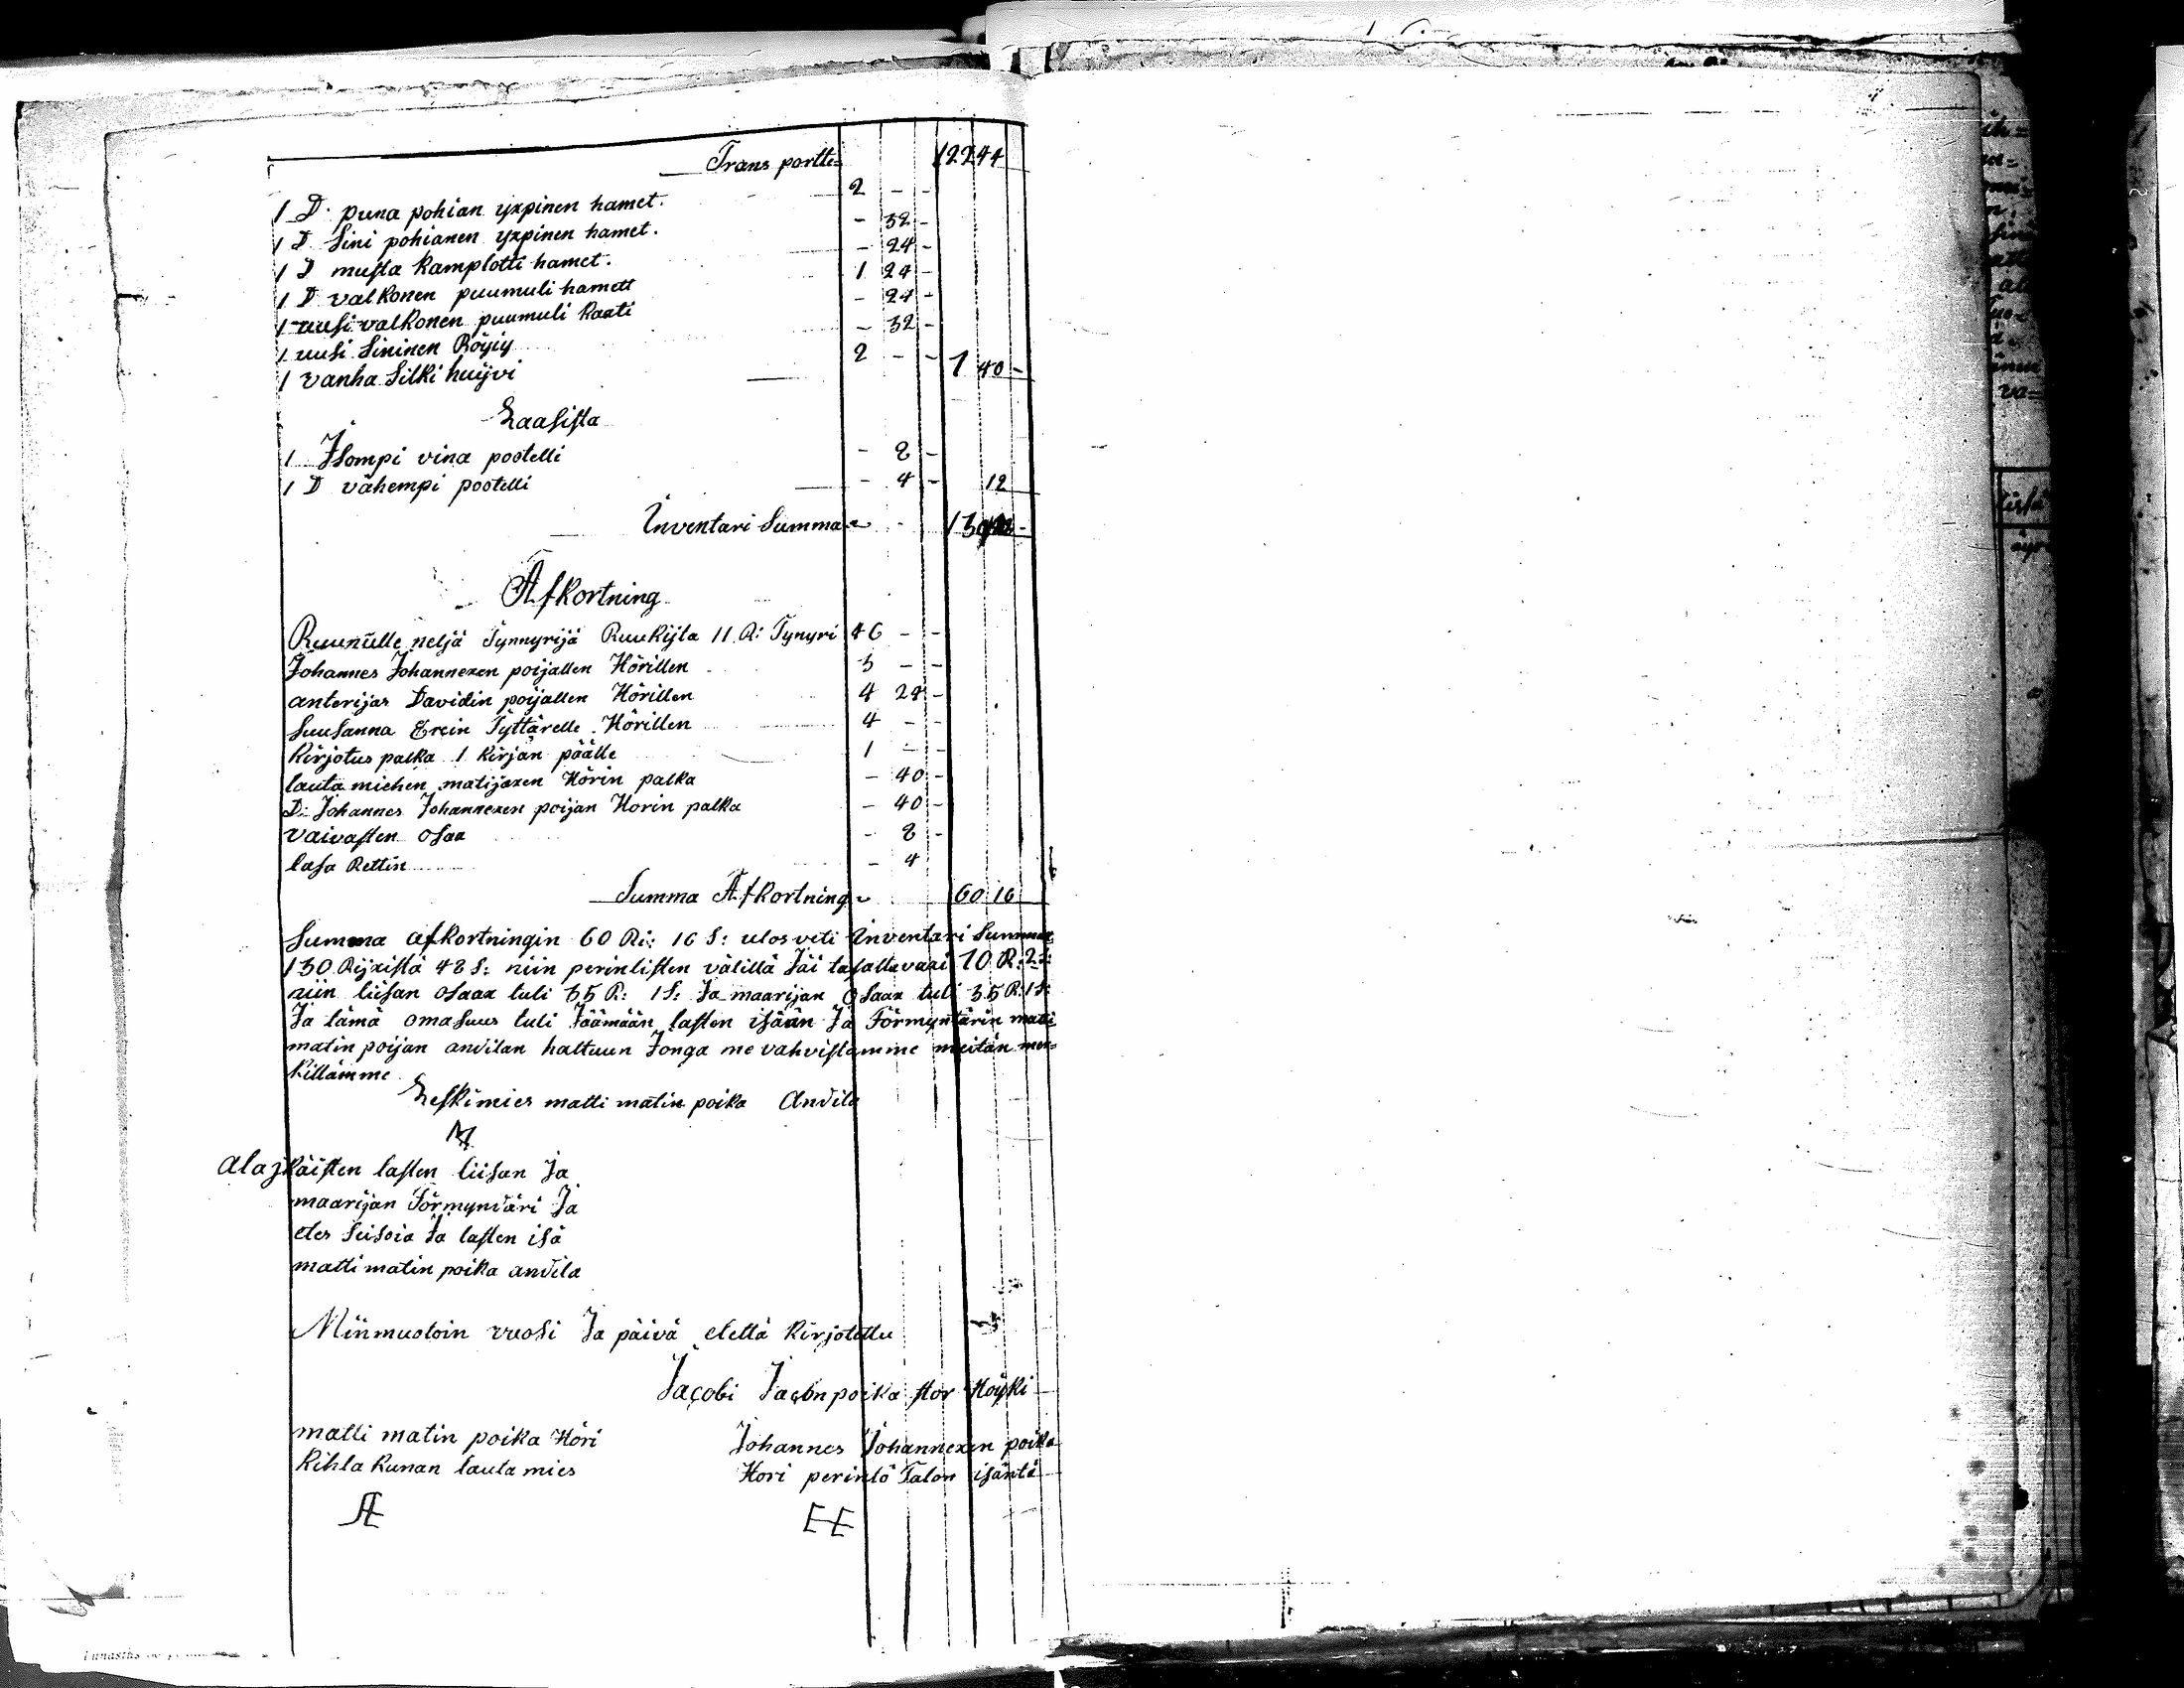 Trans portti= 122 44
1 D. puna pohian yxpinen hamet. 2 - -
1 D Sini pohianen yxpinen hamet. - 32 -
1 D musta kamplotti hamet. - 24 -
1 D valkonen puumuli hamett 1 24 -
1 uusi valkonen puumuli kaati - 24 -
1 uusi Sininen Röyiy - 32 -
1 vanha Silki huijvi 2 - - 7 40 -
Laasista
1 Isompi vina pootelli - 8 -
1 D vähempi pootelli - 4 - 12
Inventari Summa
Afkortning
Ruunulle neljä Tynnyrijä Ruukijta 11 R: Tynyri 46 - -
Johannes Johannexen poijallen Hörillen 3 - -
anterijas Davidin poijallen Hörillen 4 24 -
Suusanna Ercin Tyttärelle Hörillen 4 - -
Kirjotus palka 1 kirjan päälle 1 - -
lauta miehen matijaxen Hörin palka - 40 -
D: Johannes Johannexen poijan Horin palka - 40 -
vaivasten osaa - 8 -
lasa Rettin - 4
Summa Afkortning 60 16
Summa afkortningin 60 Ri: 16 S: ulos veti Inventari Summas
130 Rijxistä 48 S: niin perinlisten välillä Jäi tasattavaxi 70 R: 2 S:
niin liisan osaax tuli 35 R: 1 S: Ja maarijan osaax tuli 35 R: 1 S:
Ja tämä omasuus tuli Jäämään lasten isään Ja Förmyntärin matti
matin poijan andilan haltuun Jonga me vahvistamme meitän mer=
killämme
Leskimies matti matin poika Andila
alajkäisten lasten liisan Ja
maarijan Förmyndäri Ja
etes Seisoia Ja lasten isä
matti matin poika andila
Niinmuotoin vuosi Ja päivä elellä kirjotettu
Jacobi Jacon poika stor Höyki
matti matin poika Höri Johannes Johannexen poika
kihla kunan lauta mies Hori perintö Talon isäntä